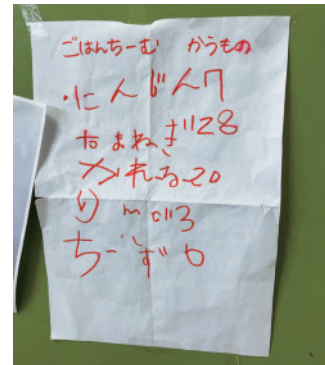 ごはんちーむ かうもの
・にんじん7
たまねぎ28
かれー20
りんご3
ちーず6